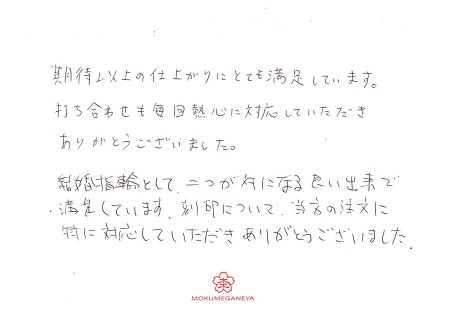 期待以上の仕上がりにとても満足しています。
打ち合わせも毎回熱心に対応していただき
ありがとうございました。
結婚指輪として、二つが対になる良い出来で
満足しています。刻印について、当方の注文に
特に対応していただきありがとうございました。
MOKUMEGANEYA